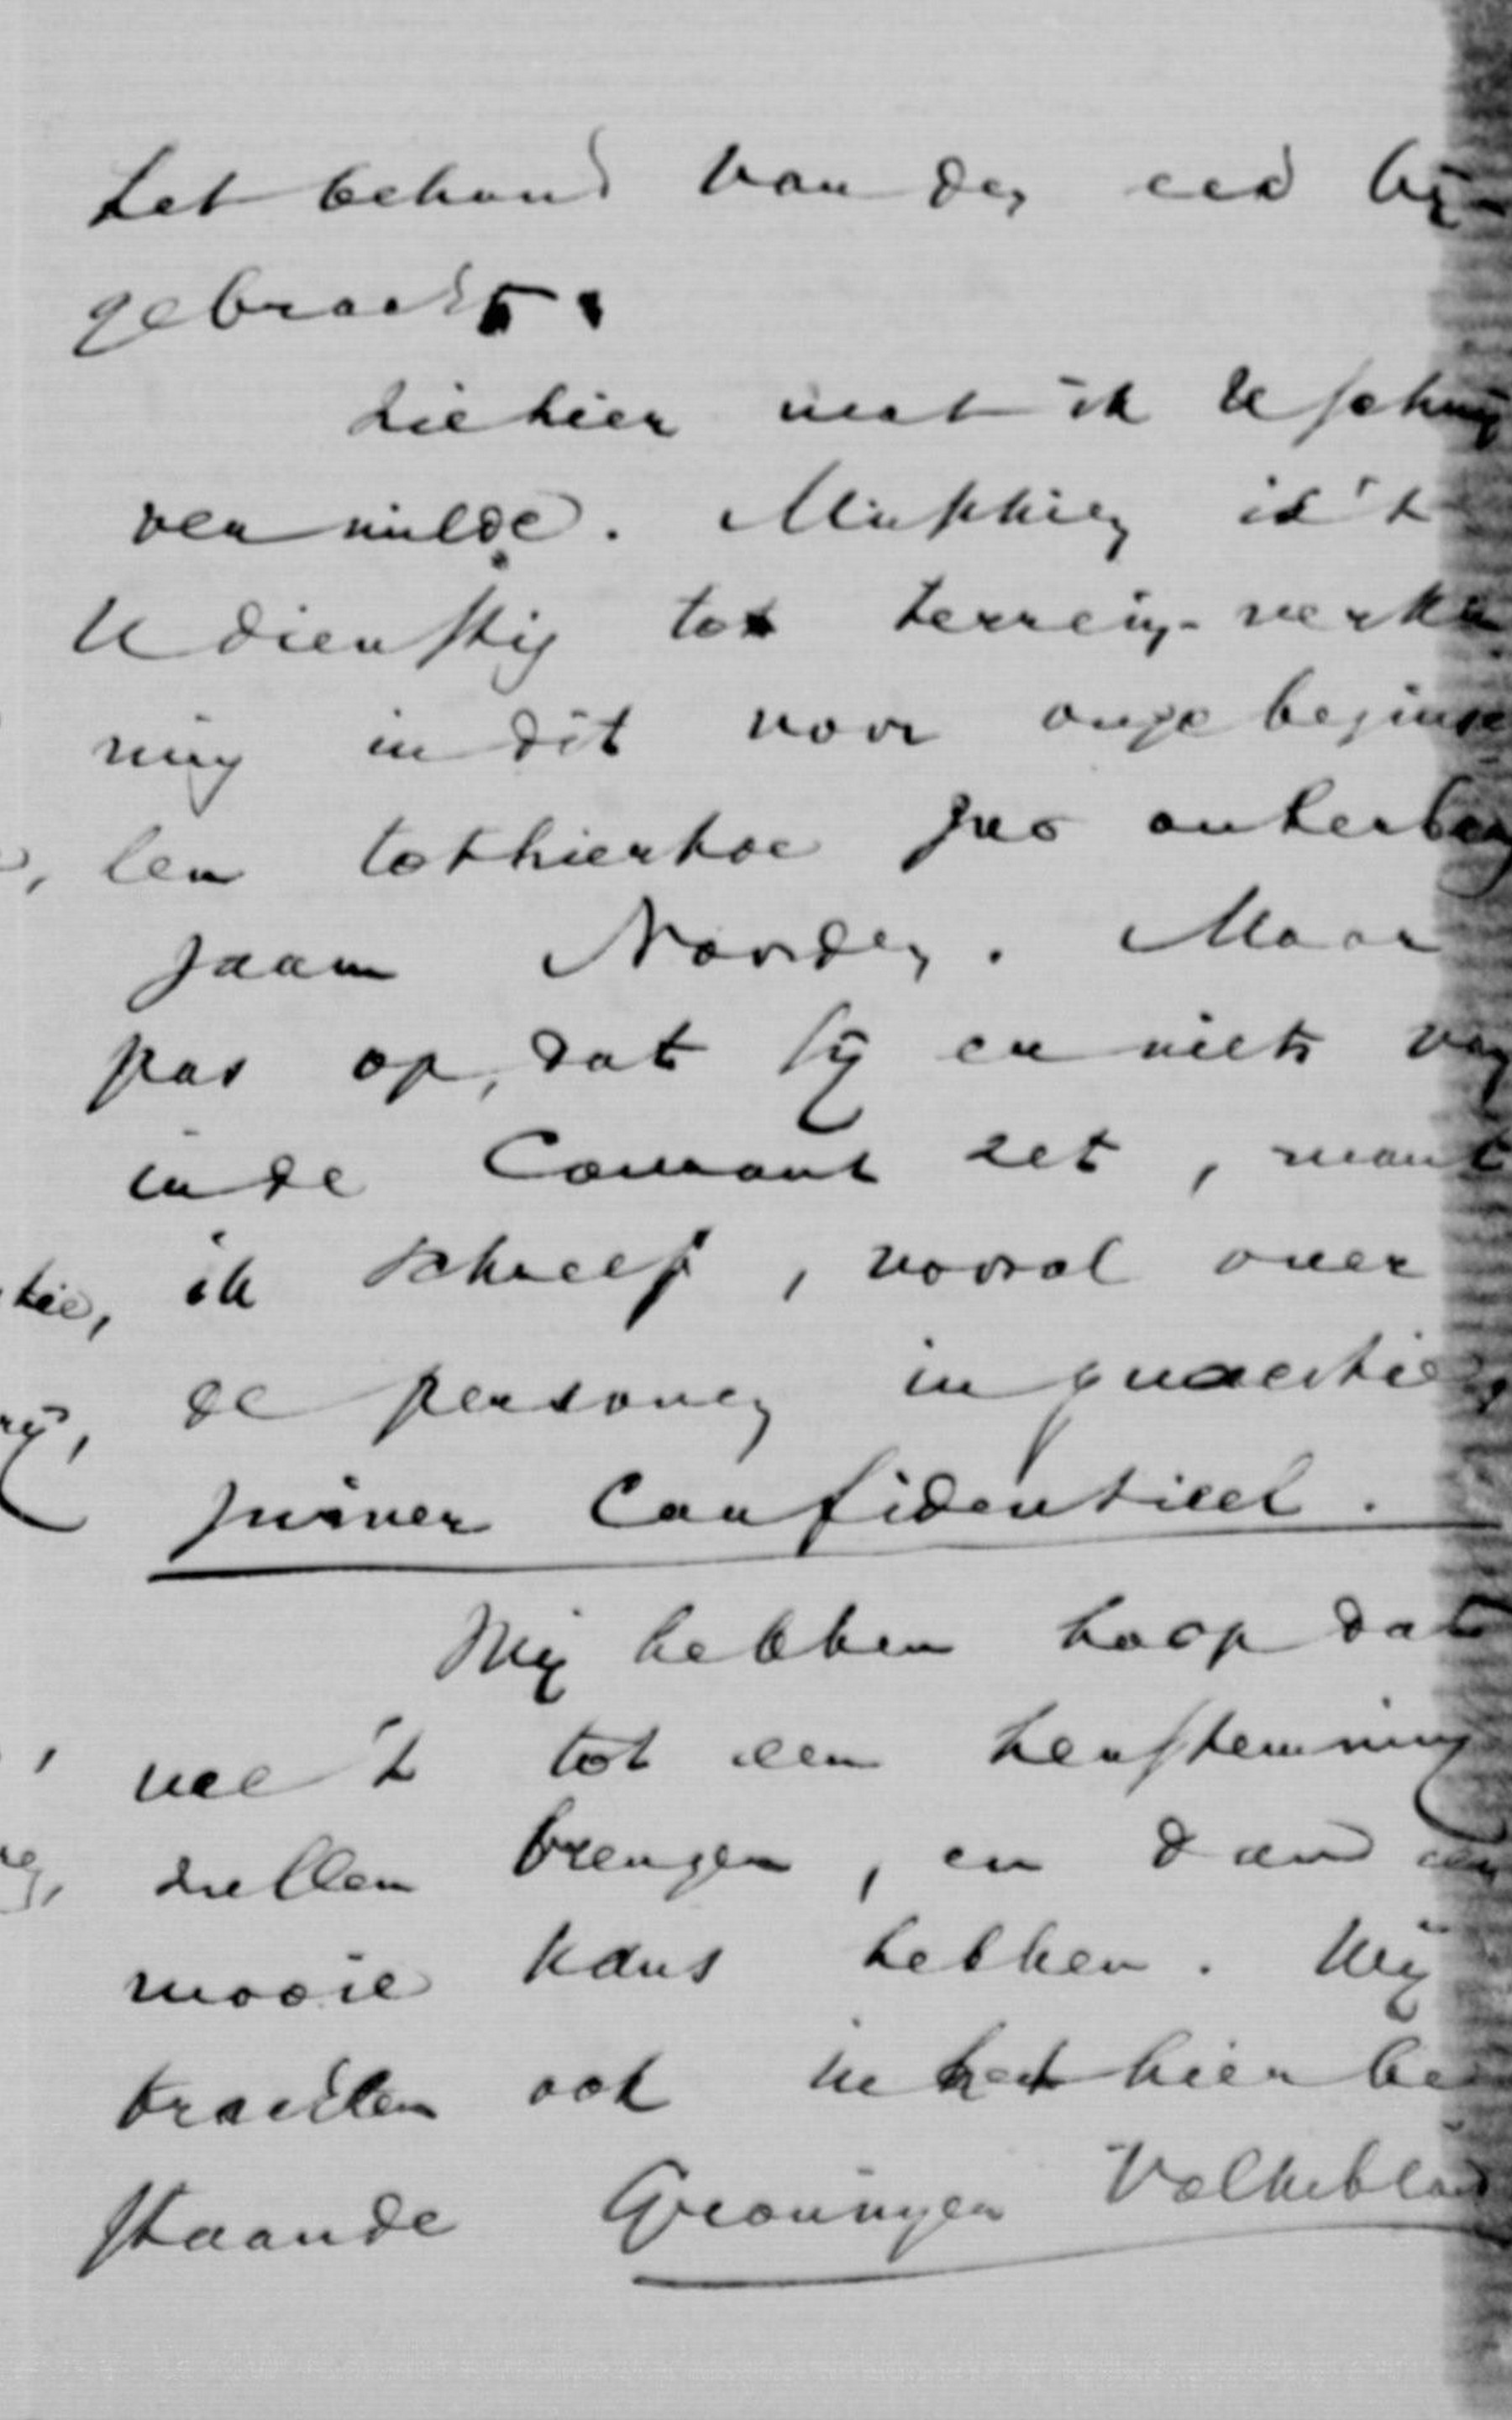 het behoud van den eed bij-
gebracht.
Ziehier wat ik U schrij
ven wilde. Misschien is 't
U dienstig tot terrein-verken
ning in dit voor onze beginse
len tothiertoe zoo onherberg
zaam Noorden. Maar
pas op, dat gij er niets van
in de Courant zet, want
ik schreef, vooral over
de personen in quaestie,
zuiver Confidentieel.
Wij hebben hoop dat
we 't tot een herstemming
zullen brengen, en dan een
mooie kans hebben. Wij
trachten ook in het hier be
staande Groninger Volksblad